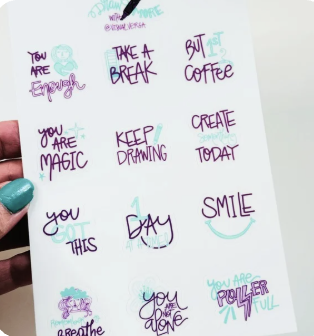 YOU
ARE
Enough
TAKE A
BREAK
BUT 1ST
Coffee
you
ARE
MAGIC
KEEP
DRAWING
CREATE
TODAY
you
GOT
THIS
1
DAY
SMILE
Breathe
you
ARE
NOT
alone
YOU ARE
POWER
FULL